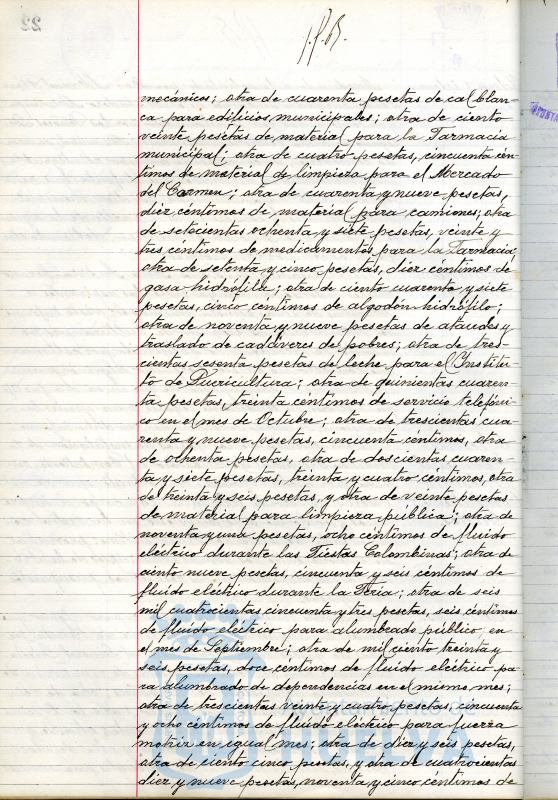 22
mecánicos; otra de cuarenta pesetas de cal blan-
ca para edificios municipales; otra de ciento
veinte pesetas de material para la Farmacia
municipal; otra de cuatro pesetas, cincuenta cén-
timos de material de limpieza para el Mercado
del Carmen; otra de cuarenta y nueve pesetas,
diez céntimos de material para camiones; otra
de setecientas ochenta y siete pesetas, veinte y
tres céntimos de medicamentos para la Farmacia;
otra de setenta y cinco pesetas, diez céntimos de
gasa hidrófila; otra de ciento cuarenta y siete
pesetas, cinco céntimos de algodón hidrófilo;
otra de noventa y nueve pesetas de ataudes y
traslado de cadáveres de pobres; otra de tres-
cientas sesenta pesetas de leche para el Institu-
to de Puericultura; otra de quinientas cuaren-
ta pesetas, treinta céntimos de servicio telefóni-
co en el mes de Octubre; otra de trescientas cua
renta y nueve pesetas, cincuenta céntimos, otra
de ochenta pesetas, otra de doscientas cuaren-
ta y siete pesetas, treinta y cuatro céntimos, otra
de treinta y seis pesetas, y otra de veinte pesetas
de material para limpieza pública; otra de
noventa y una pesetas, ocho céntimos de fluido
eléctrico durante las Fiestas Colombinas; otra de
ciento nueve pesetas, cincuenta y seis céntimos de
fluido eléctrico durante la Feria; otra de seis
mil cuatrocientas cincuenta y tres pesetas, seis céntimos
de fluído eléctrico para alumbrado público en
el mes de Septiembre; otra de mil ciento treinta y
seis pesetas, doce céntimos de fluido eléctrico pa-
ra alumbrado de dependencias en el mismo mes;
otra de trescientas veinte y cuatro pesetas, cincuenta
y ocho céntimos de fluido eléctrico para fuerza
motriz en igual mes; otra de diez y seis pesetas,
otra de ciento cinco pesetas, y otra de cuatrocientas
diez y nueve pesetas, noventa y cinco céntimos de